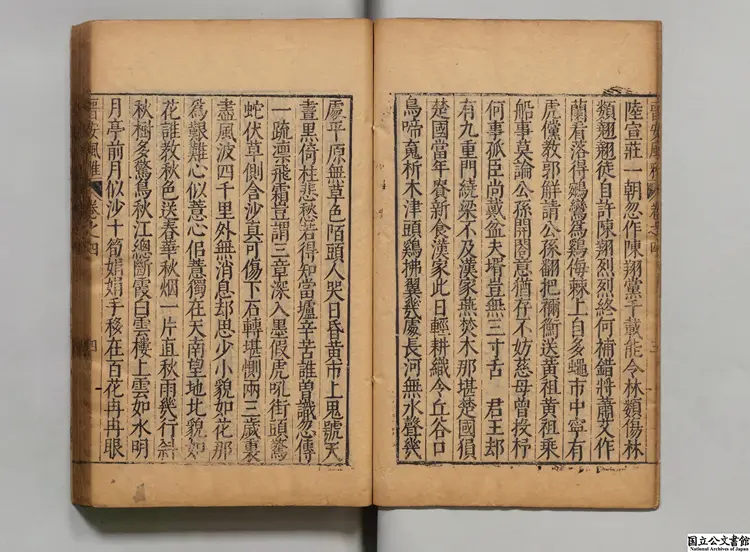 晉安風雅 卷之四 三
陸宣莊一朝忽作陳翔黨千載能令林類傷林
類翩翩徒自許陳翔烈烈終何補錯將蕭艾作
蘭看落得鸞爲鷄侮棘上自多蠅市中寧有
虎儻教郭鮮請公孫翻把禰衡送黃祖黃祖乘
船事莫論公孫開閤意猶存不妨慈母曾投杼
何事孤臣尚戴盆夫壻豈無三寸舌 君王却
有九重門繞梁不及漢家燕焚木那堪楚國猿
楚國當年新食漢家此日輕耕織令丘谷口
烏啼䰟析木津頭鷄拂翼幾處長河無水聲幾
處平原無草色陌頭人哭日昏黃市上鬼號天
晝黑倚柱悲愁若得知當壚辛苦誰曽識忽傳
一疏凛飛霜豈謂三章深入墨假虎吼街頭驚
蛇伏草側含沙真可傷下石轉堪惻兩三歲裏
盡風波四千里外無消息却思少小貌如花那
爲艱難心似薏心侣薏獨在天南望地北貌如
花誰教秋色送春華秋烟一片直秋雨幾行斜
秋樹多驚鳥秋江總斷霞白雲樓上雲如水明
月亭前月似沙十筍娟娟手移在百花冉冉眼
晉安風雅 卷之四 四
国立公文書館
National Archives of Japan